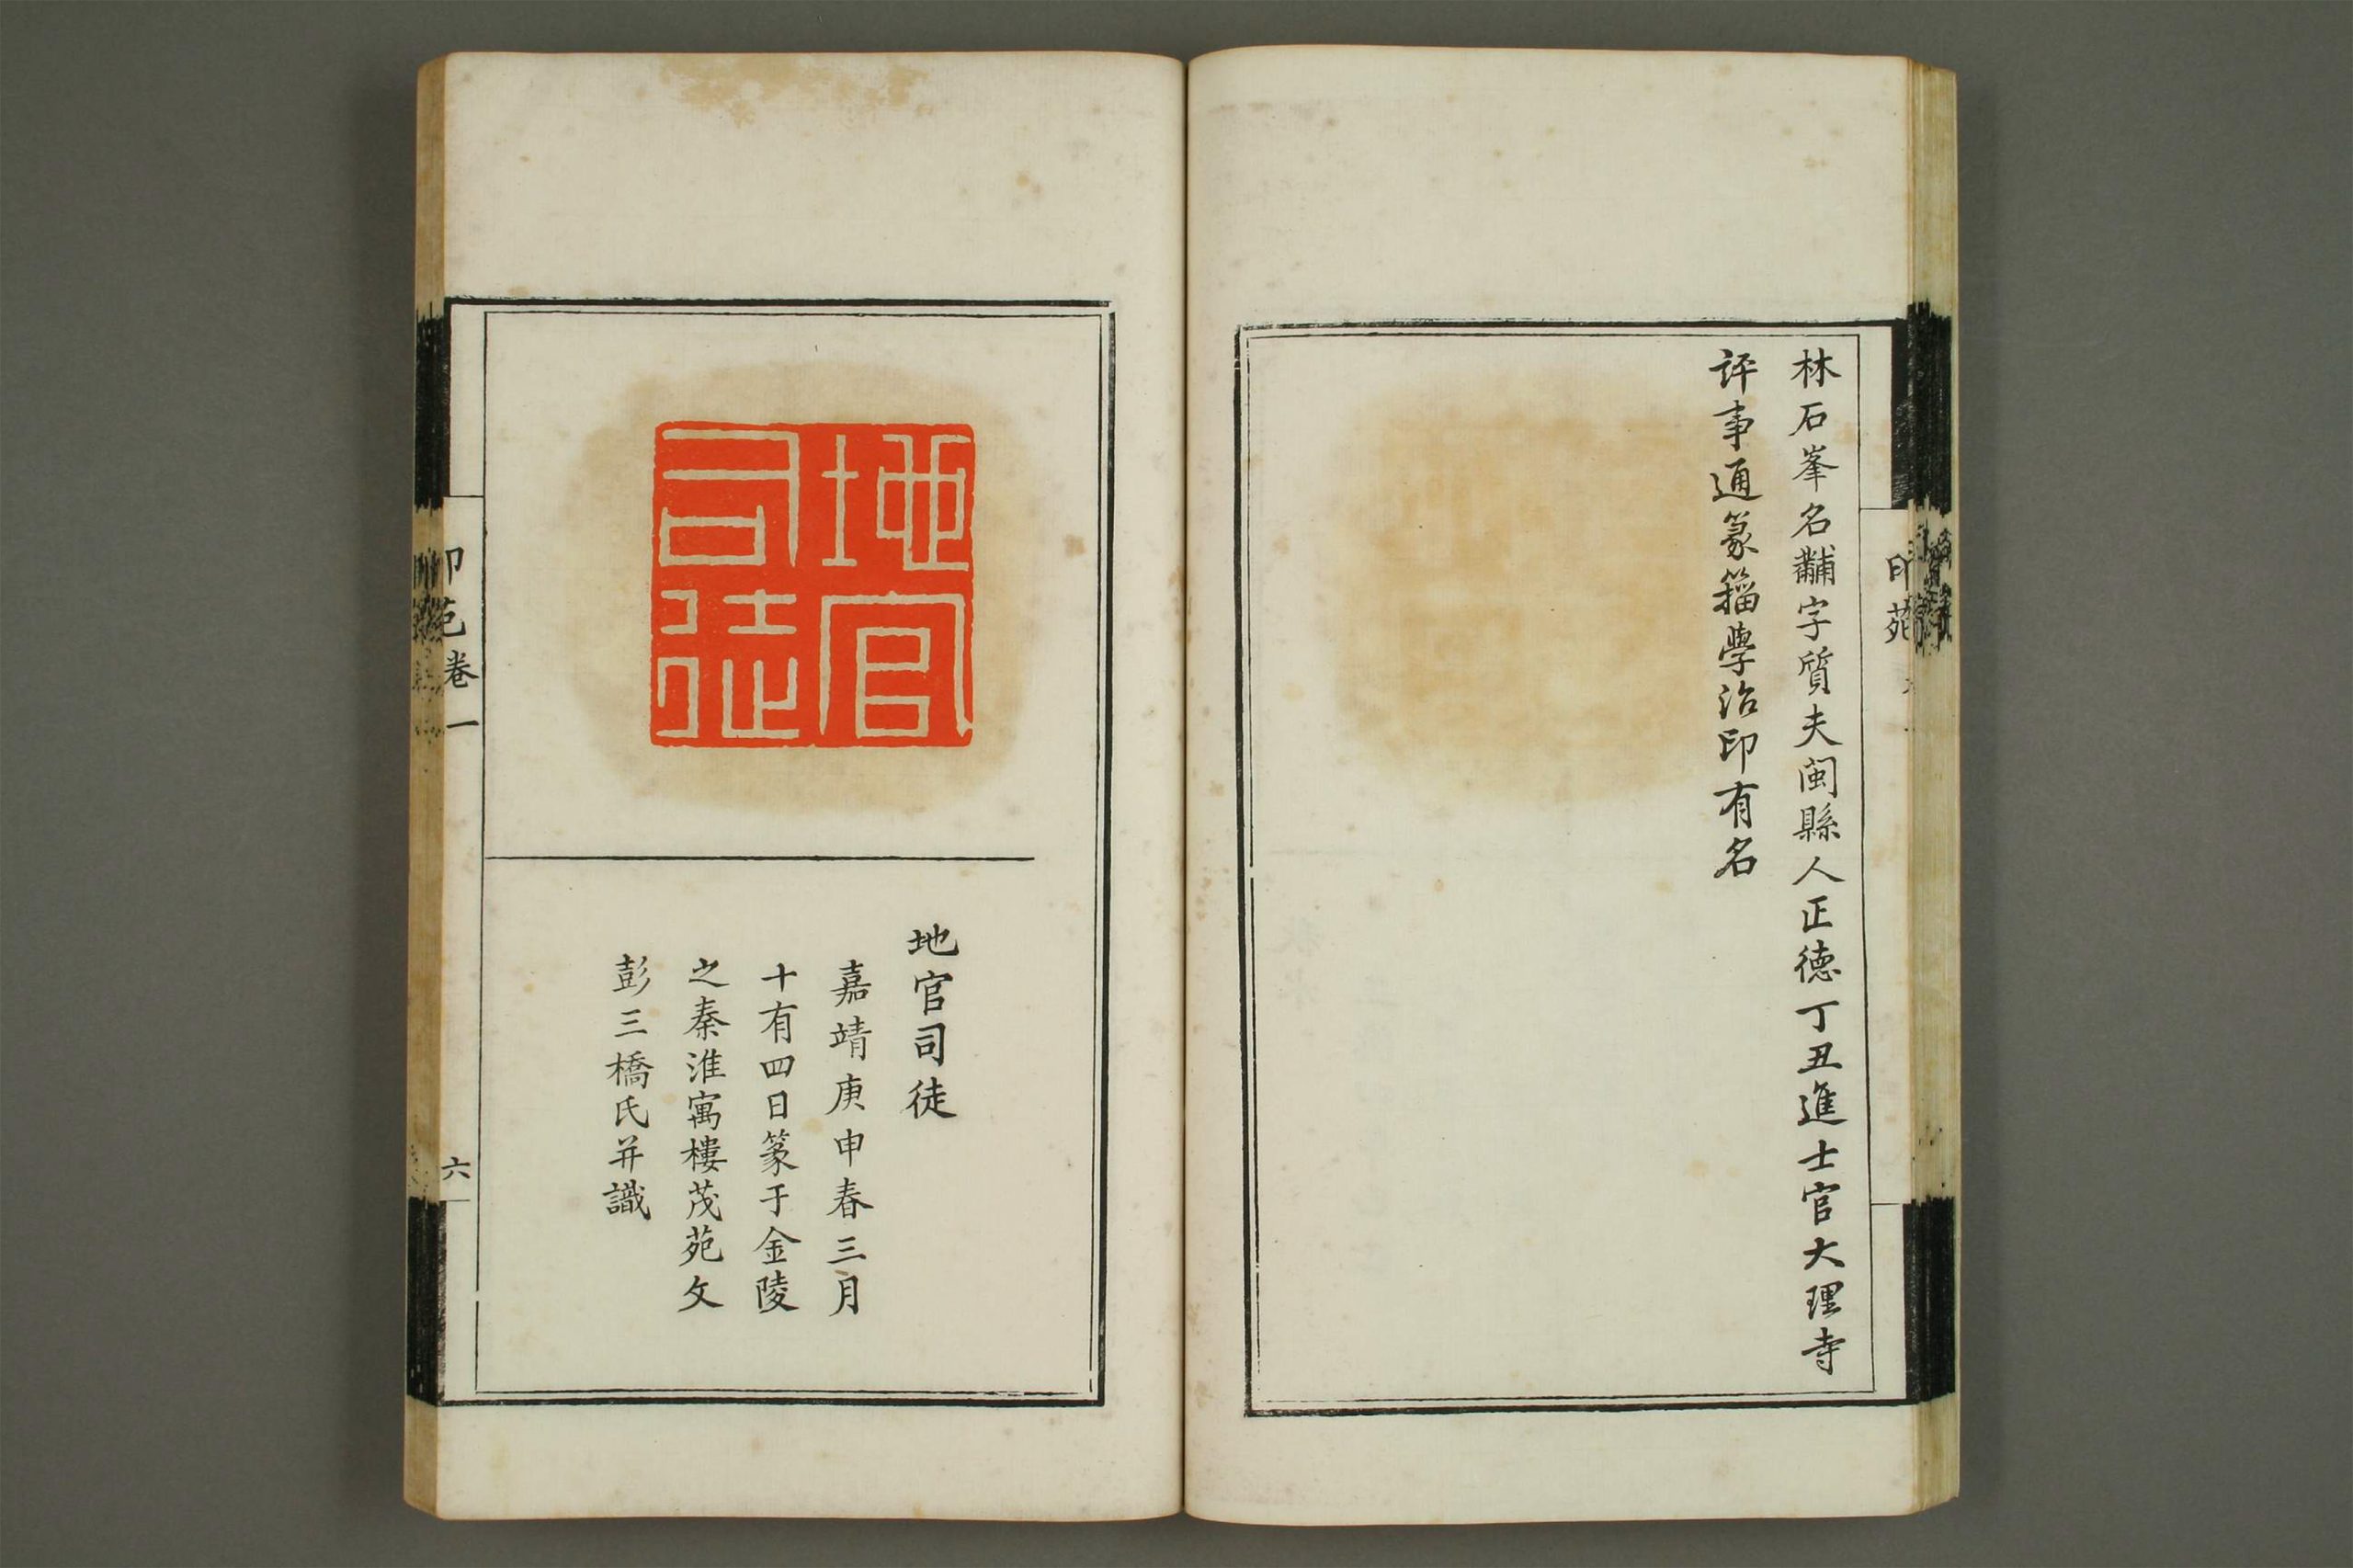 林石峯名黼字質夫閩縣人正德丁丑進士官大理寺
評事通篆籀學治印有名
印苑
地官司徒
地官司徒
嘉靖庚申春三月
十有四日篆于金陵
之秦淮寓樓茂苑文
彭三橋氏并識
印苑卷一
六